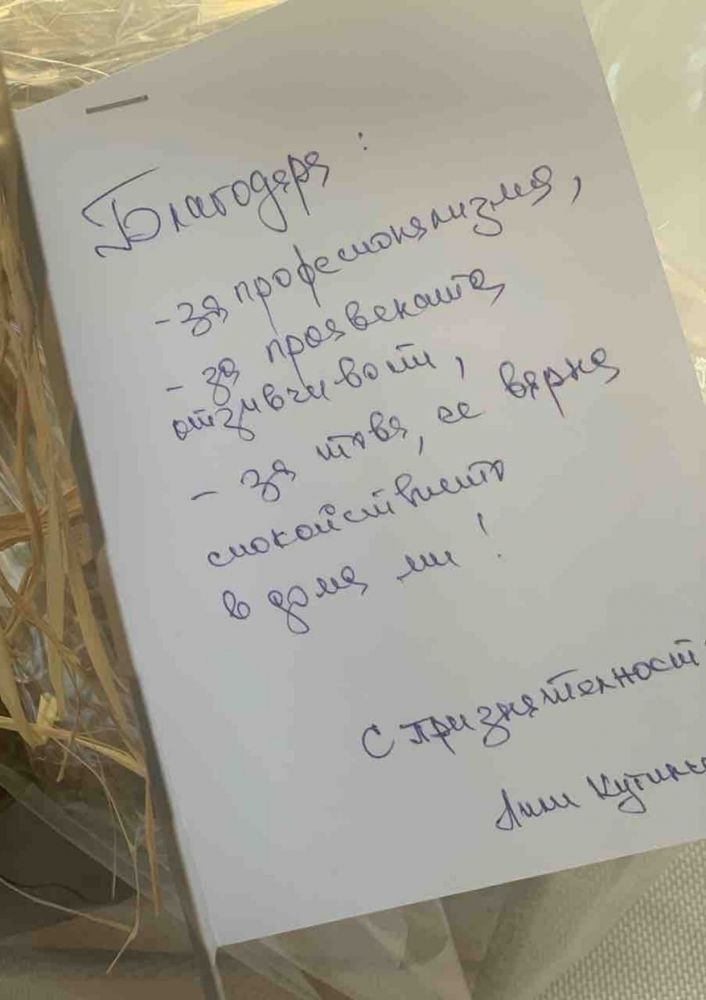 Благодаря:
- за професионализма,
- за проявената
отзивчивост,
- за това, се върна
спокойствието
в дома ми!
С признателност
Лили